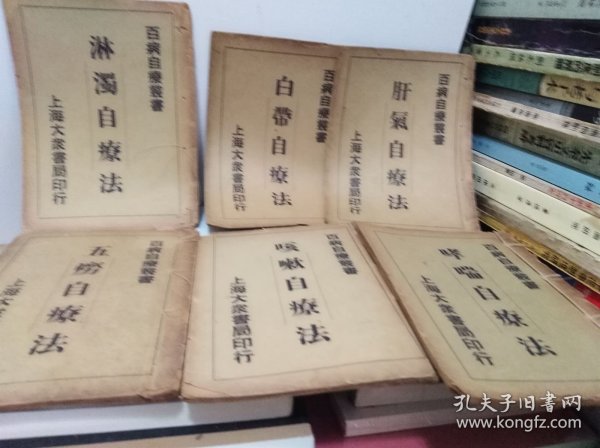 百病自療叢書
淋濁自療法
上海大衆書局印行
百病自療叢書
白帶自療法
上海大衆書局印行
百病自療叢書
肝氣自療法
上海大衆書局印行
百病自療叢書
五癆自療法
上海大衆書局印行
百病自療叢書
咳嗽自療法
上海大衆書局印行
百病自療叢書
哮喘自療法
上海大衆書局印行
孔夫子旧书网
www.kongfz.com